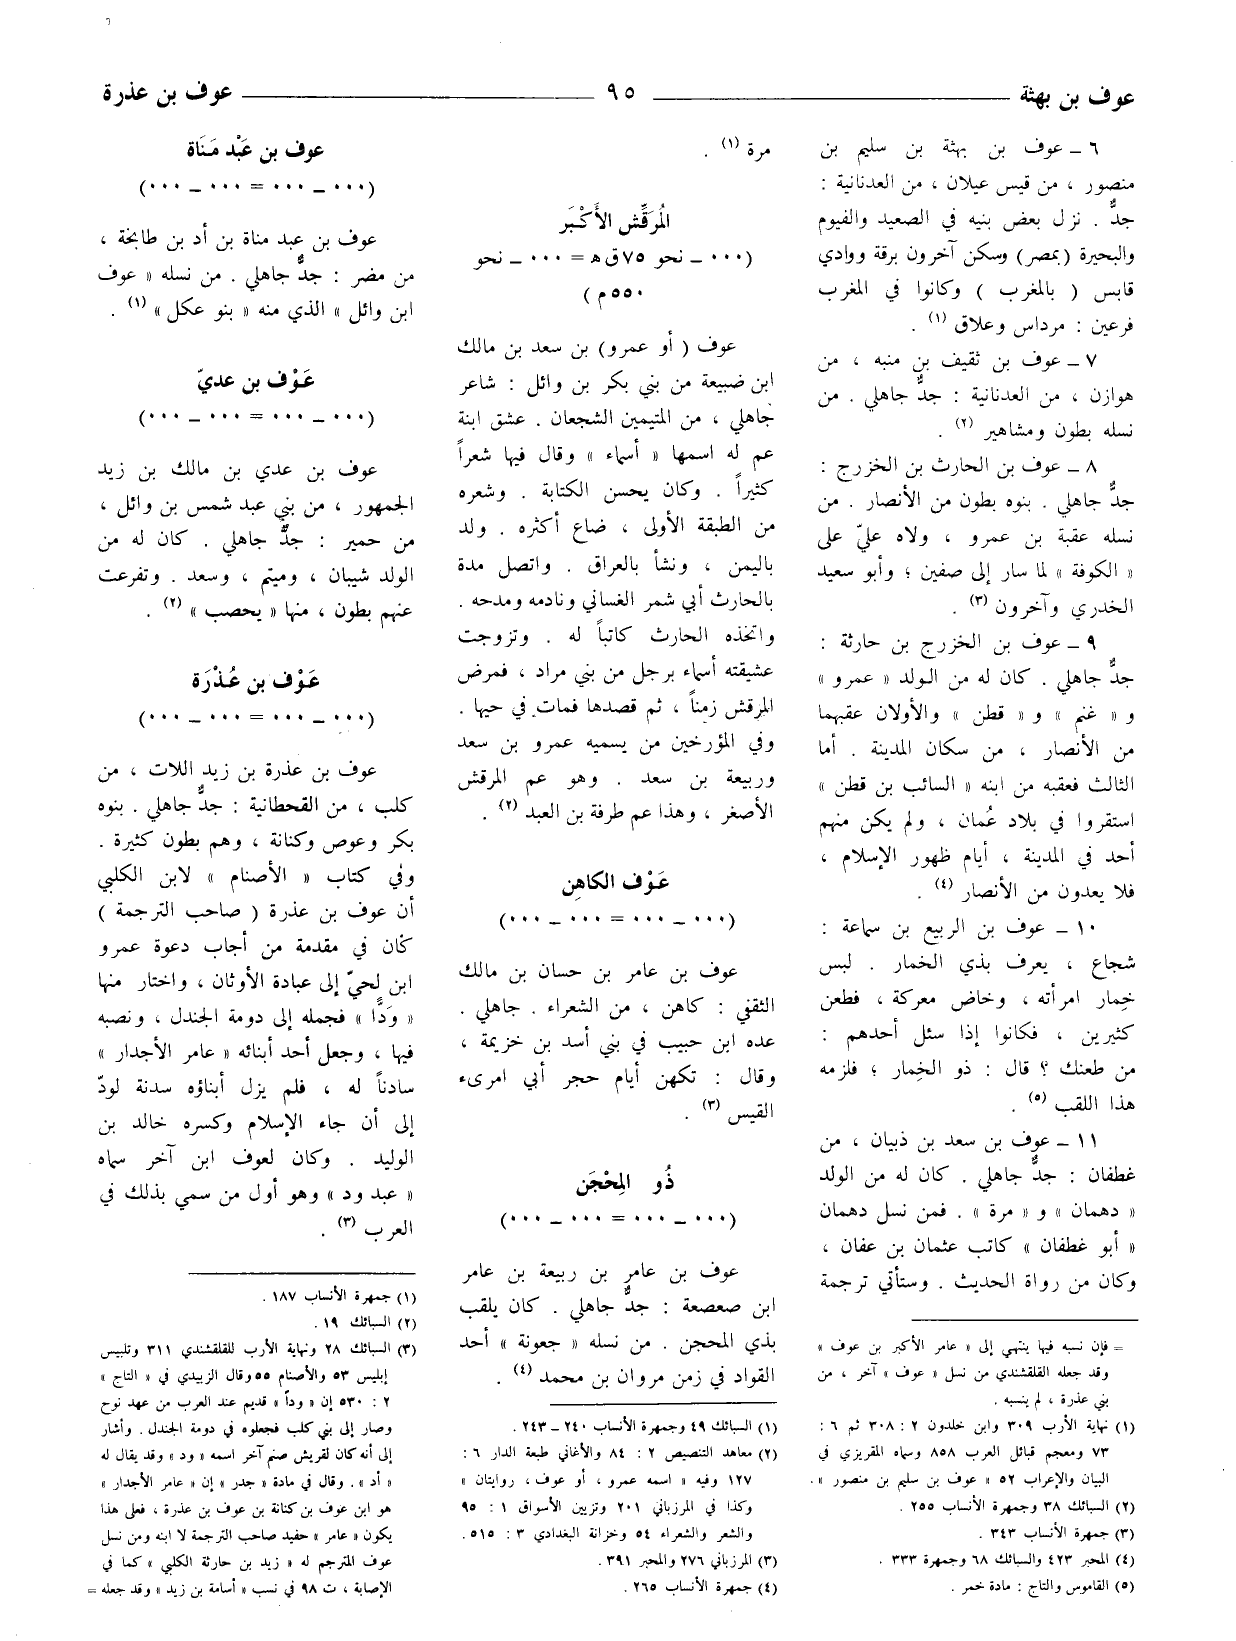 عوف بن بهثة ـــــ ٩٥ ـــــ عوف بن عذرة
٦ ـ عوف بن بهثة بن سليم بن
منصور ، من قيس عيلان ، من العدنانية :
جدٌّ . نزل بعض بنيه في الصعيد والفيوم
والبحيرة (بمصر) وسكن آخرون برقة ووادي
قابس ( بالمغرب ) وكانوا في المغرب
فرعين : مرداس وعلاق (١) .
٧ ـ عوف بن ثقيف بن منبه ، من
هوازن ، من العدنانية : جدٌّ جاهلي . من
نسله بطون ومشاهير (٢) .
٨ ـ عوف بن الحارث بن الخزرج :
جدٌّ جاهلي . بنوه بطون من الأنصار . من
نسله عقبة بن عمرو ، ولاه عليّ على
« الكوفة » لما سار إلى صفين ؛ وأبو سعيد
الخدري وآخرون (٣) .
٩ ـ عوف بن الخزرج بن حارثة :
جدٌّ جاهلي . كان له من الولد « عمرو »
و « غنم » و « قطن » والأولان عقبهما
من الأنصار ، من سكان المدينة . أما
الثالث فعقبه من ابنه « السائب بن قطن »
استقروا في بلاد عُمان ، ولم يكن منهم
أحد في المدينة ، أيام ظهور الإسلام ،
فلا يعدون من الأنصار (٤) .
١٠ ـ عوف بن الربيع بن سماعة :
شجاع ، يعرف بذي الخمار . لبس
خِمار امرأته ، وخاض معركة ، فطعن
كثيرين ، فكانوا إذا سئل أحدهم :
من طعنك ؟ قال : ذو الخِمار ؛ فلزمه
هذا اللقب (٥) .
١١ ـ عوف بن سعد بن ذبيان ، من
غطفان : جدٌّ جاهلي . كان له من الولد
« دهمان » و « مرة » . فمن نسل دهمان
« أبو غطفان » كاتب عثمان بن عفان ،
وكان من رواة الحديث . وستأتي ترجمة
= فإن نسبه فيها ينتهي إلى « عامر الأكبر بن عوف »
وقد جعله القلقشندي من نسل « عوف » آخر ، من
بني عذرة ، لم ينسبه .
(١) نهاية الأرب ٣٠٩ وابن خلدون ٢ : ٣٠٨ ثم ٦ :
٧٣ ومعجم قبائل العرب ٨٥٨ وسماه المقريزي في
البيان والإعراب ٥٢ « عوف بن سليم بن منصور » .
(٢) السبائك ٣٨ وجمهرة الأنساب ٢٥٥ .
(٣) جمهرة الأنساب ٣٤٣ .
(٤) المحبر ٤٢٣ والسبائك ٦٨ وجمهرة ٣٣٣ .
(٥) القاموس والتاج : مادة خمر .
مرة (١) .
المُرَقِّش الأَكْبَر
(٠٠٠ ـ نحو ٧٥ ق ه = ٠٠٠ ـ نحو
٥٥٠ م )
عوف ( أو عمرو) بن سعد بن مالك
ابن ضبيعة من بني بكر بن وائل : شاعر
جاهلي ، من المتيمين الشجعان . عشق ابنة
عم له اسمها « أسماء » وقال فيها شعراً
كثيراً . وكان يحسن الكتابة . وشعره
من الطبقة الأولى ، ضاع أكثره . ولد
باليمن ، ونشأ بالعراق . واتصل مدة
بالحارث أبي شمر الغساني ونادمه ومدحه .
واتخذه الحارث كاتباً له . وتزوجت
عشيقته أسماء برجل من بني مراد ، فمرض
المرقش زمناً ، ثم قصدها فمات في حيها .
وفي المؤرخين من يسميه عمرو بن سعد
وربيعة بن سعد . وهو عم المرقش
الأصغر ، وهذا عم طرفة بن العبد (٢) .
عَوْف الكاهِن
(٠٠٠ ـ ٠٠٠ = ٠٠٠ ـ ٠٠٠)
عوف بن عامر بن حسان بن مالك
الثقفي : كاهن ، من الشعراء . جاهلي .
عده ابن حبيب في بني أسد بن خزيمة ،
وقال : تكهن أيام حجر أبي امرىء
القيس (٣) .
ذُو المِحْجَن
(٠٠٠ ـ ٠٠٠ = ٠٠٠ ـ ٠٠٠)
عوف بن عامر بن ربيعة بن عامر
ابن صعصعة : جدٌّ جاهلي . كان يلقب
بذي المحجن . من نسله « جعونة » أحد
القواد في زمن مروان بن محمد (٤) .
(١) السبائك ٤٩ وجمهرة الأنساب ٢٤٠ ـ ٢٤٣ .
(٢) معاهد التنصيص ٢ : ٨٤ والأغاني طبعة الدار ٦ :
١٢٧ وفيه « اسمه عمرو ، أو عوف ، روايتان »
وكذا في المرزباني ٢٠١ وتزيين الأسواق ١ : ٩٥
والشعر والشعراء ٥٤ وخزانة البغدادي ٣ : ٥١٥ .
(٣) المرزباني ٢٧٦ والمحبر ٣٩١ .
(٤) جمهرة الأنساب ٢٦٥ .
عوف بن عَبْد مَنَاة
(٠٠٠ ـ ٠٠٠ = ٠٠٠ ـ ٠٠٠)
عوف بن عبد مناة بن أد بن طابخة ،
من مضر : جدٌّ جاهلي . من نسله « عوف
ابن وائل » الذي منه « بنو عكل » (١) .
عَوْف بن عديّ
(٠٠٠ ـ ٠٠٠ = ٠٠٠ ـ ٠٠٠)
عوف بن عدي بن مالك بن زيد
الجمهور ، من بني عبد شمس بن وائل ،
من حمير : جدٌّ جاهلي . كان له من
الولد شيبان ، وميتم ، وسعد . وتفرعت
عنهم بطون ، منها « يحصب » (٢) .
عَوْف بن عُذْرَة
(٠٠٠ ـ ٠٠٠ = ٠٠٠ ـ ٠٠٠)
عوف بن عذرة بن زيد اللات ، من
كلب ، من القحطانية : جدٌّ جاهلي . بنوه
بكر وعوص وكنانة ، وهم بطون كثيرة .
وفي كتاب « الأصنام » لابن الكلبي
أن عوف بن عذرة ( صاحب الترجمة )
كان في مقدمة من أجاب دعوة عمرو
ابن لحيّ إلى عبادة الأوثان ، واختار منها
« وَدًّا » فحمله إلى دومة الجندل ، ونصبه
فيها ، وجعل أحد أبنائه « عامر الأجدار »
سادناً له ، فلم يزل أبناؤه سدنة لودّ
إلى أن جاء الإسلام وكسره خالد بن
الوليد . وكان لعوف ابن آخر سماه
« عبد ود » وهو أول من سمي بذلك في
العرب (٣) .
(١) جمهرة الأنساب ١٨٧ .
(٢) السبائك ١٩ .
(٣) السبائك ٢٨ ونهاية الأرب للقلقشندي ٣١١ وتلبيس
إبليس ٥٣ والأصنام ٥٥ وقال الزبيدي في « التاج »
٢ : ٥٣٠ إن « وداً » قديم عند العرب من عهد نوح
وصار إلى بني كلب فجعلوه في دومة الجندل . وأشار
إلى أنه كان لقريش صنم آخر اسمه « ود » وقد يقال له
« أد » . وقال في مادة « جدر » إن « عامر الأجدار »
هو ابن عوف بن كنانة بن عوف بن عذرة ، فعلى هذا
يكون « عامر » حفيد صاحب الترجمة لا ابنه ومن نسل
عوف المترجم له « زيد بن حارثة الكلبي » كما في
الإصابة ، ت ٩٨ في نسب « أسامة بن زيد » وقد جعله =